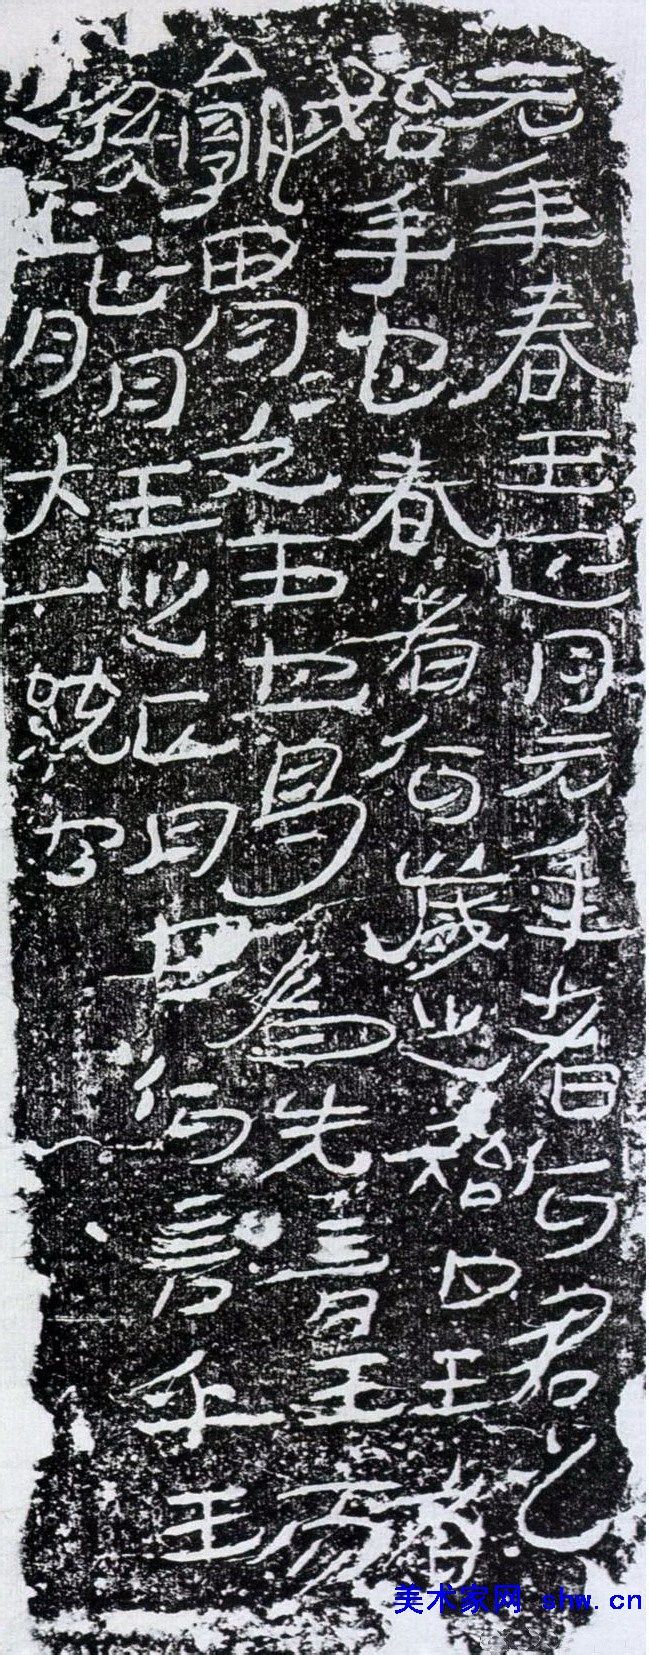 元年春王正月元年者何君之
始年也春者何歲之始也王者
孰胃文王也曷為先言王而
後正月王之正月也何言乎王
正月大一統
美术家网 shw.cn